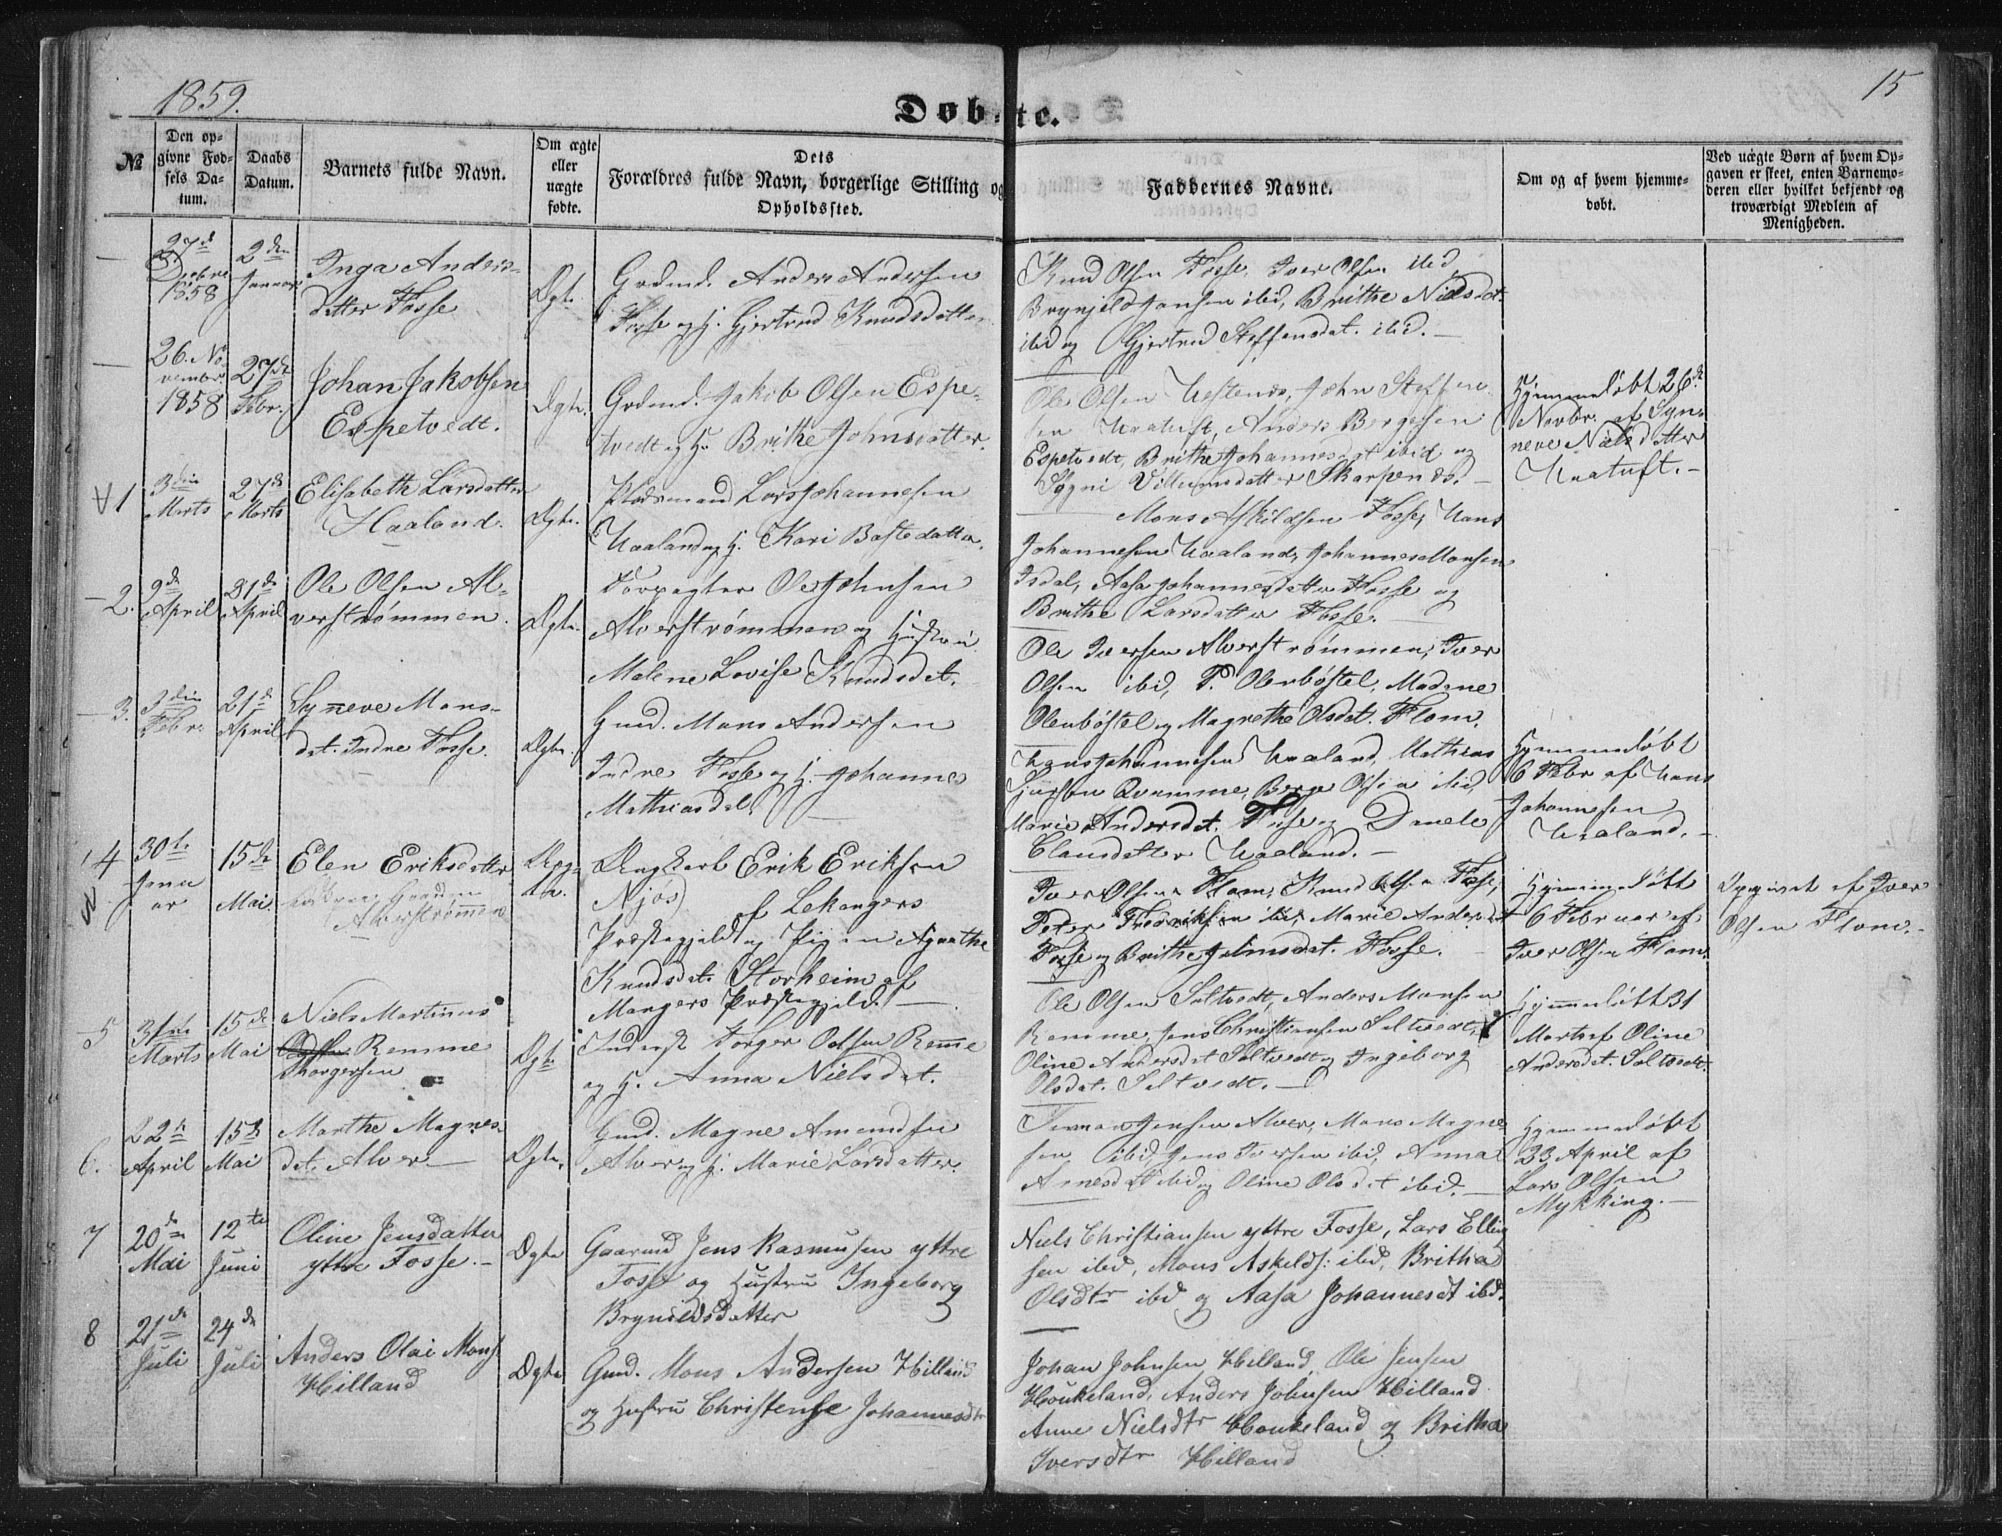 1859.
15
Døbte.
№
Den op-
givne Fød-
sels Da-
tum.
Daabs
Datum.
Barnets fulde Navn.
Om ægte
eller
uægte
fødte.
Dets
Forældres fulde Navn, borgerlige Stilling og
Opholdssted.
Faddernes Navne.
Om og af hvem hjemme-
døbt.
Ved uægte Børn af hvem Op-
gaven er skeet, enten Barnemo-
deren eller hvilket bekjendt og
troværdigt Medlem af
Menigheden.
27de
1858
2den
Januar
Inga Anders-
datter Fosse
Ægte
Grdmd. Anders Andersen
Fosse og H. Gjertrud Knudsdatter
Knud Olsen Fosse, Iver Olsen ibid
Brynjeld Hansen ibid, Brithe Nielsdat.
ibid og Gjertrud Steffensdat. ibid.
26. No-
vembr.
1858
27de
Febr.
Johan Jakobsen
Espetvedt.
Ægte.
Grdmd. Jakob Olsen Espe-
tvedt og H. Brithe Johnsdatter.
Ole Olsen John Steffen-
sen Anders Børgesen
Espetvedt, Brithe Johannesdat ibid og
Villumsdatter Skarpenes.
Hjemmedøbt 26de
Novbr. af Syn-
neve Nielsdatter
1
3die
Marts
27de
Marts
Elisabeth Larsdatter
Haaland.
Ægte.
Pladsmand Lars Johannesen
Haaland og H. Kari Bastedatter.
Mons Askildsen Fosse, Hans
Johannesen Haaland, Johannes Monsen
Isdal, Aasa Johannesdatter Fosse og
Brithe Larsdatter Fosse.
2.
9de
April
21de
April
Ole Olsen Al-
verstrømmen.
Ægte.
Forpagter Ole Johnsen
Alverstrømmen og Hustru
Malene Lovise Knudsdet.
Ole Iversen Alverstrømmen, Iver
Olsen ibid, P. Olenbøstel, Madme
Olenbøstel og Magrethe Olsdat. Flom.
3.
3die
Febr.
21de
April
Synneve Mons-
dat. Indre Fosse.
Ægte.
Gmd. Mons Andersen
Indre Fosse og H. Johanne
Mathiasdat.
Hans Johannesen Haaland, Mathias
Qvamme, Berge Olsen ibid,
Marie Andersdat. Fosse og
Clausdatter Haaland.
Hjemmedøbt
6 Febr af Hans
Johannesen
Haaland.
4
30te
Janu
ar
15de
Mai.
Elen Eriksdatter
Alverstrømmen
Uæg-
te.
Ungkarl Erik Eriksen
Njøs af Lekangers
Præstegjeld og Pigen Agathe
Knudsdat. Storheim af
Mangers Præstegjeld.
Iver Olsen Flom, Knud Olsen Fosse,
Peter Fredriksen ibid, Marie Andersdat
Fosse og Brithe Johnsdat. Fosse.
Hjemmedøbt
6 Februar af
Iver Olsen Flom.
Opgivet af Iver
Olsen Flom.
5
31te
Marts
15de
Mai
Niels Martinus
Remme
Thorgersen
Ægte
Inderst Torger Olsen Remme
og H. Anna Nielsdat.
Ole Olsen Seltvedt, Anders Monsen
Remme, Jens Christiansen Seltvedt,
Oline Andersdat Seltvedt og Ingeborg
Olsdat. Seltvedt.
Hjemmedøbt 31
Marts af Oline
Andersdat. Seltvedt.
6.
22de
April
15de
Mai
Marthe Magnes-
dat. Alver
Ægte.
Gmd. Magne Amundsen
Alver og H. Marie Larsdatter.
Jensen Alver, Mons Magne-
sen ibid Jens Iversen ibid, Anna
Arnesdat ibid og Oline Olsdat ibid.
Hjemmedøbt
23 April af
Lars Olsen
Mykking.
7
20de
Mai
12te
Juni
Oline Jensdatter
yttre Fosse.
Ægte
Gaarmd Jens Rasmusen yttre
Fosse og Hustru Ingeborg
Brynildsdatter
Niels Christiansen yttre Fosse, Lars Elling
sen ibid, Mons Askelds: ibid, Britha
Olsdtr ibd og Aasa Johannesdt ibd.
8
21de
Juli
24de
Juli
Anders Olai Mons
Hilland
Ægte
Gmd. Mons Andersen Hilland
og Hustru Christense Johannesdtr
Johan Johnsen Hilland, Ole Jensen
Houkeland, Anders Johnsen Hilland
Anne Nielsdtr Houkeland og Britha
Iversdtr Hilland